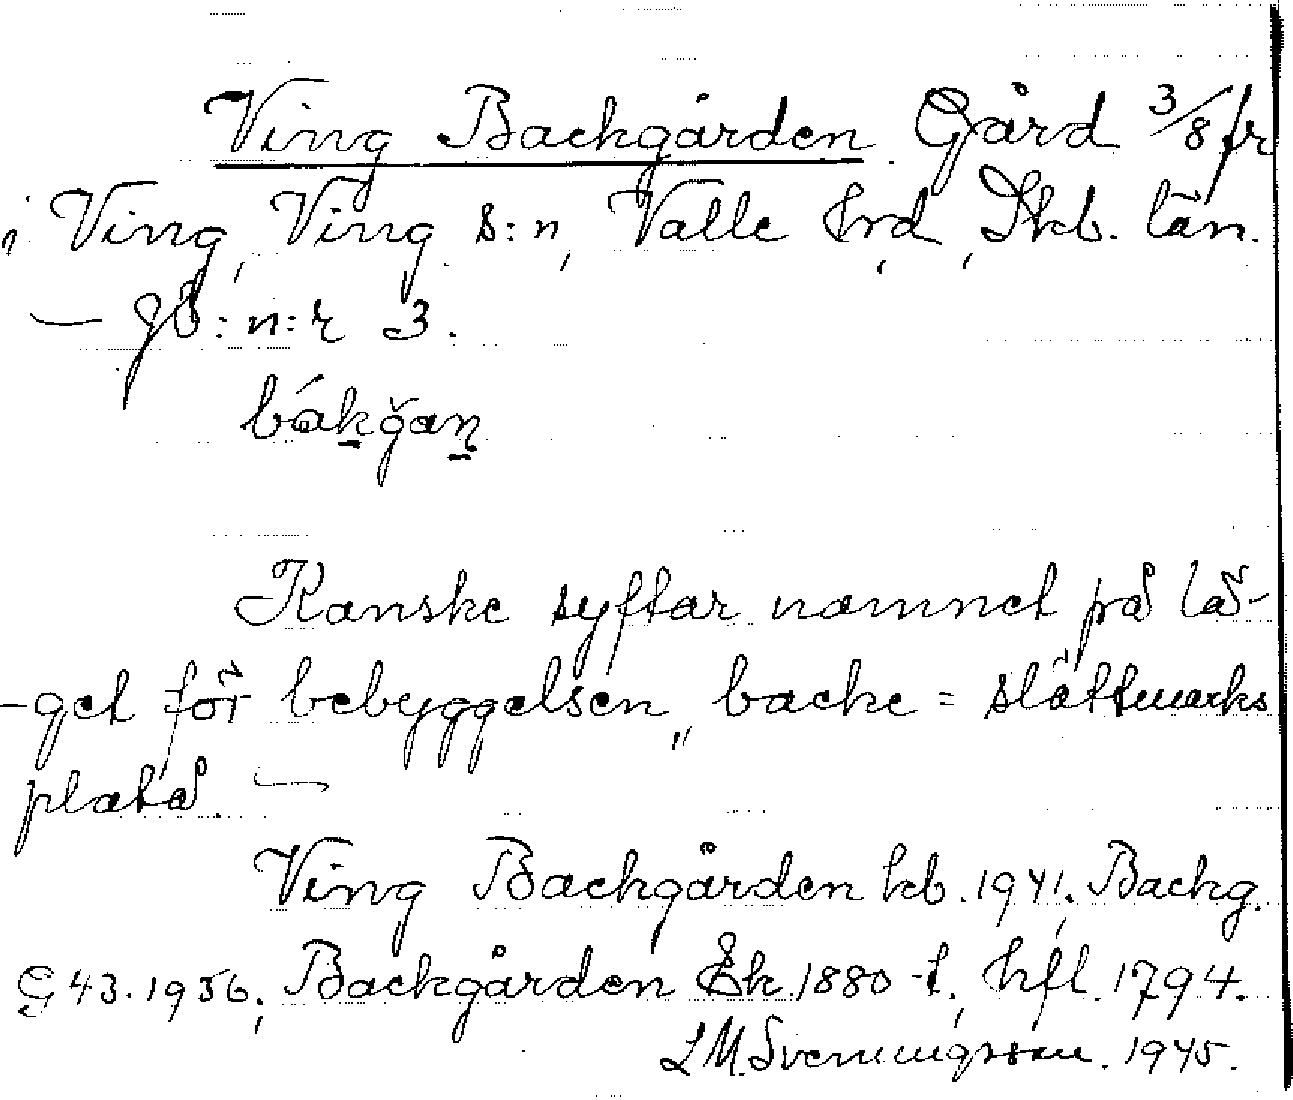 Ving Backgården. Gård 3/8 fr
i Ving, Ving s:n, Valle hrd, Skb. län.
— gb:n:r 3.
bákğan̲
Kanske syftar namnet på lä-
-get för bebyggelsen, backe = slättmarks
platå. —
Ving Backgården kb. 1941, Backg.
G 43. 1956, Backgården Ek. 1880-t, hfl. 1794.
L M. Svenningsson. 1945.